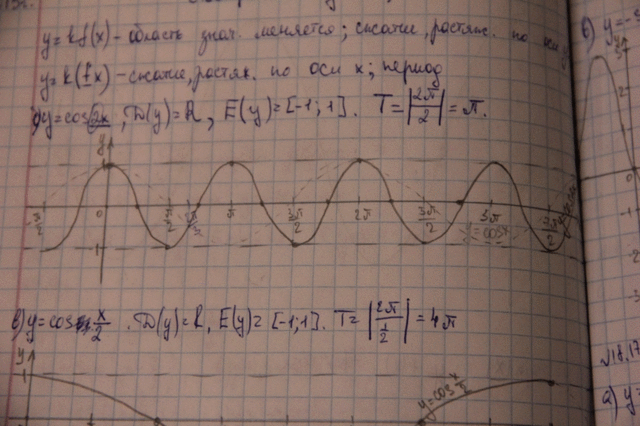 y=kf(x) - область знач. меняется; сжатие, растяж. по оси y
y=k(fx) - сжатие, растяж. по оси x; период
y=cos2x, D(y)=R, E(y)=[-1;1]. T=|2π/2|=π.
y
-π/2 0 π/2 π 3π/2 2π 5π/2 3π 7π/2
-1
y=cosx
в) y=cos x/2. D(y)=R, E(y)=[-1;1]. T=|2π/(1/2)|=4π
y
1
y=cos x/2
в) y=-3
3
-1
-2
№18.17
а) y=